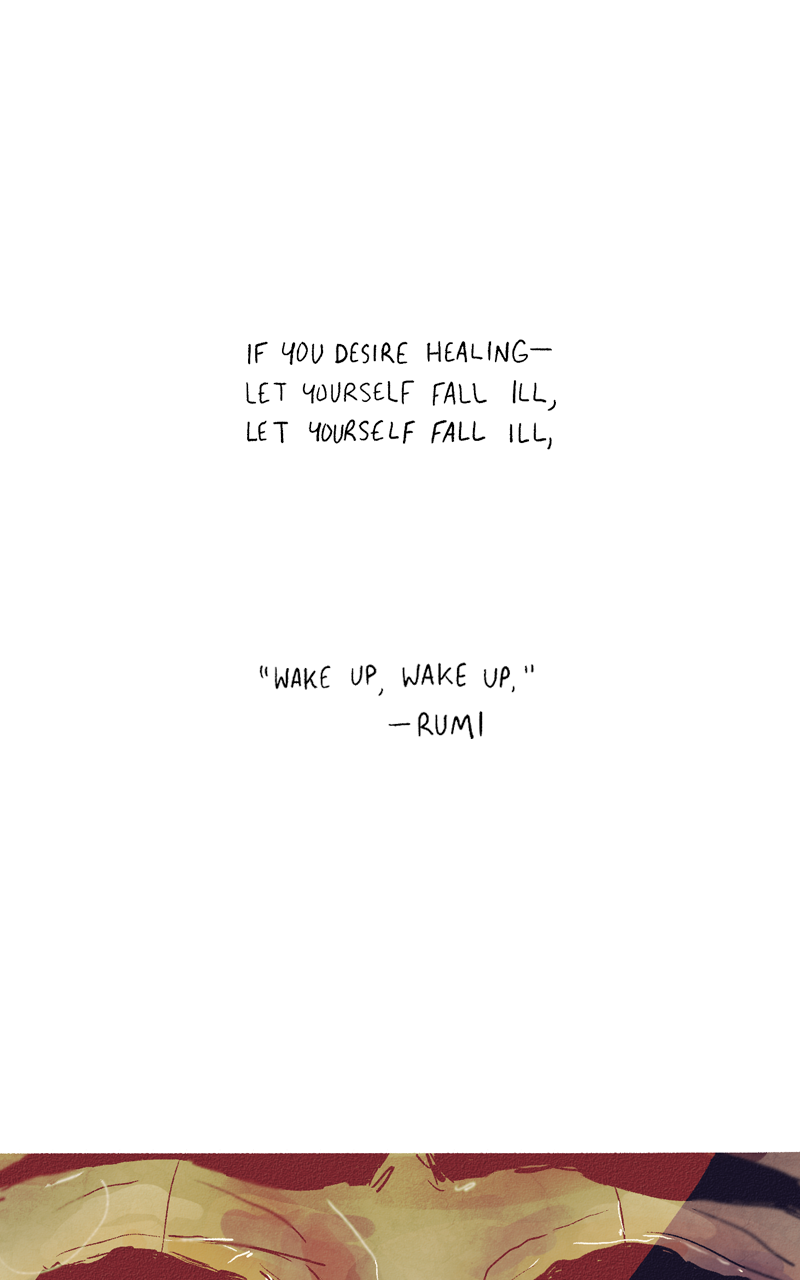 IF YOU DESIRE HEALING—
LET YOURSELF FALL ILL,
LET YOURSELF FALL ILL,
"WAKE UP, WAKE UP,"
—RUMI